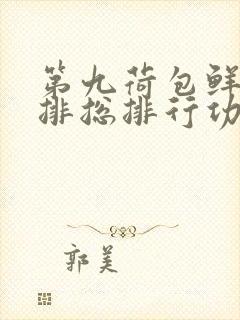 第九荷包鲜
排总排行功
郭美